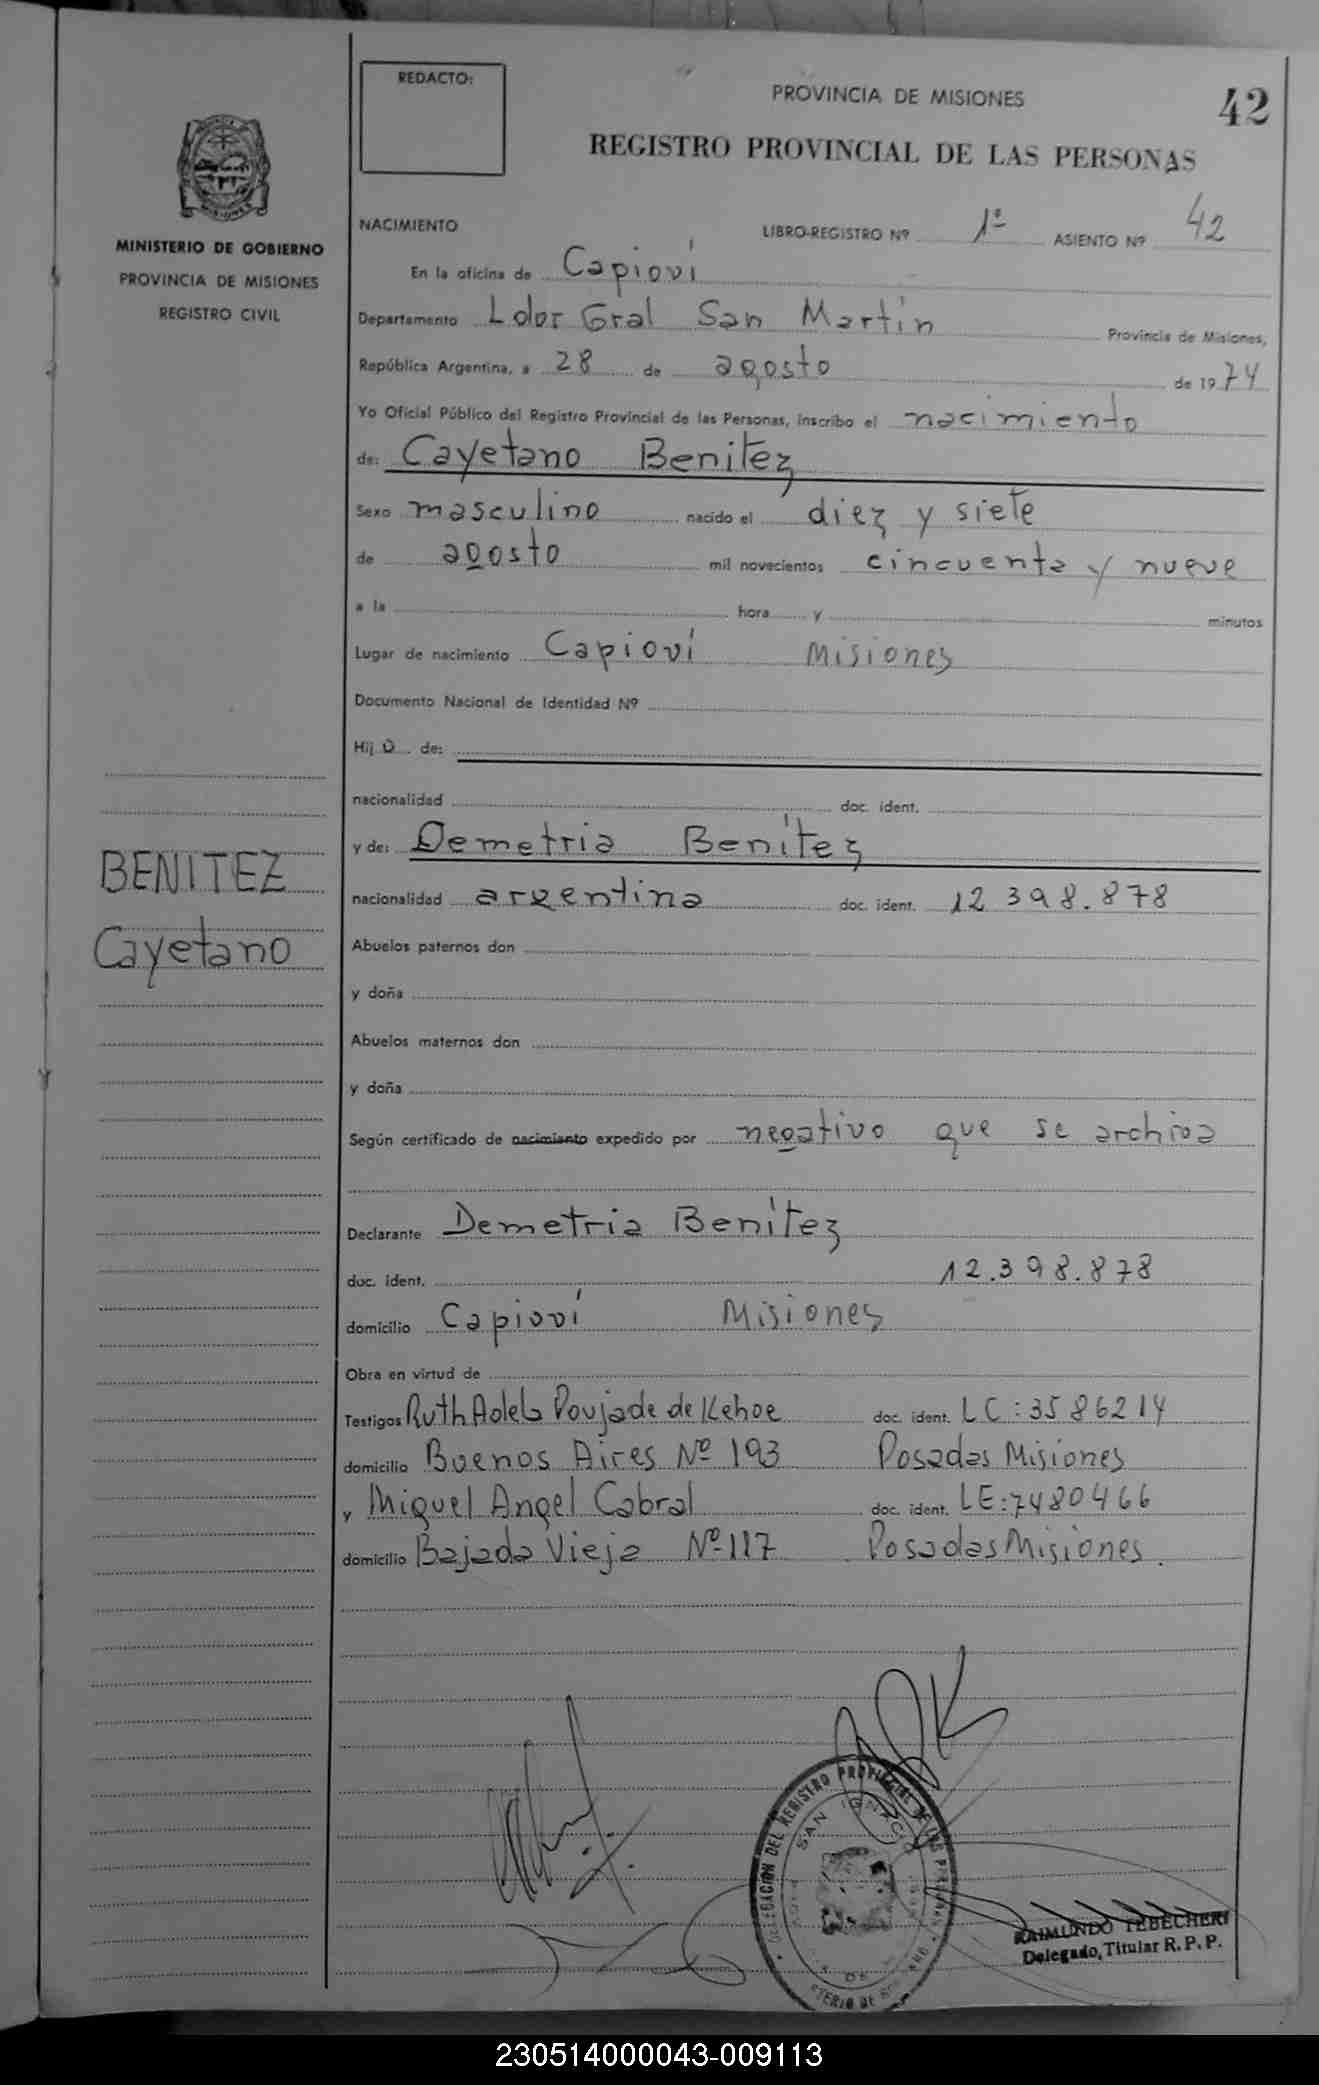 REDACTO:
PROVINCIA DE MISIONES
42
REGISTRO PROVINCIAL DE LAS PERSONAS
MINISTERIO DE GOBIERNO
PROVINCIA DE MISIONES
REGISTRO CIVIL
NACIMIENTO
LIBRO-REGISTRO Nº 1º ASIENTO Nº 42
En la oficina de Capioví
Departamento Ldor Gral San Martín Provincia de Misiones,
República Argentina, a 28 de agosto de 1974
Yo Oficial Público del Registro Provincial de las Personas, inscribo el nacimiento
de: Cayetano Benitez
Sexo masculino nacido el diez y siete
de agosto mil novecientos cincuenta y nueve
a la hora y minutos
Lugar de nacimiento Capioví Misiones
Documento Nacional de Identidad Nº
Hij o de:
nacionalidad doc. ident.
y de: Demetria Benítez
nacionalidad argentina doc. ident. 12 398.878
BENITEZ
Cayetano
Abuelos paternos don
y doña
Abuelos maternos don
y doña
Según certificado de nacimiento expedido por negativo que se archiva
Declarante Demetria Benítez
doc. ident. 12.398.878
domicilio Capioví Misiones
Obra en virtud de
Testigos Ruth Adela Poujade de Kehoe doc. ident. LC: 3586214
domicilio Buenos Aires Nº 193 Posadas Misiones
y Miguel Angel Cabral doc. ident. LE: 7480466
domicilio Bajada Vieja Nº 117 Posadas Misiones.
DELEGACION DEL REGISTRO PROVINCIAL DE LAS PERSONAS
SAN IGNACIO
RAIMUNDO TEBECHERI
Delegado, Titular R. P. P.
230514000043-009113